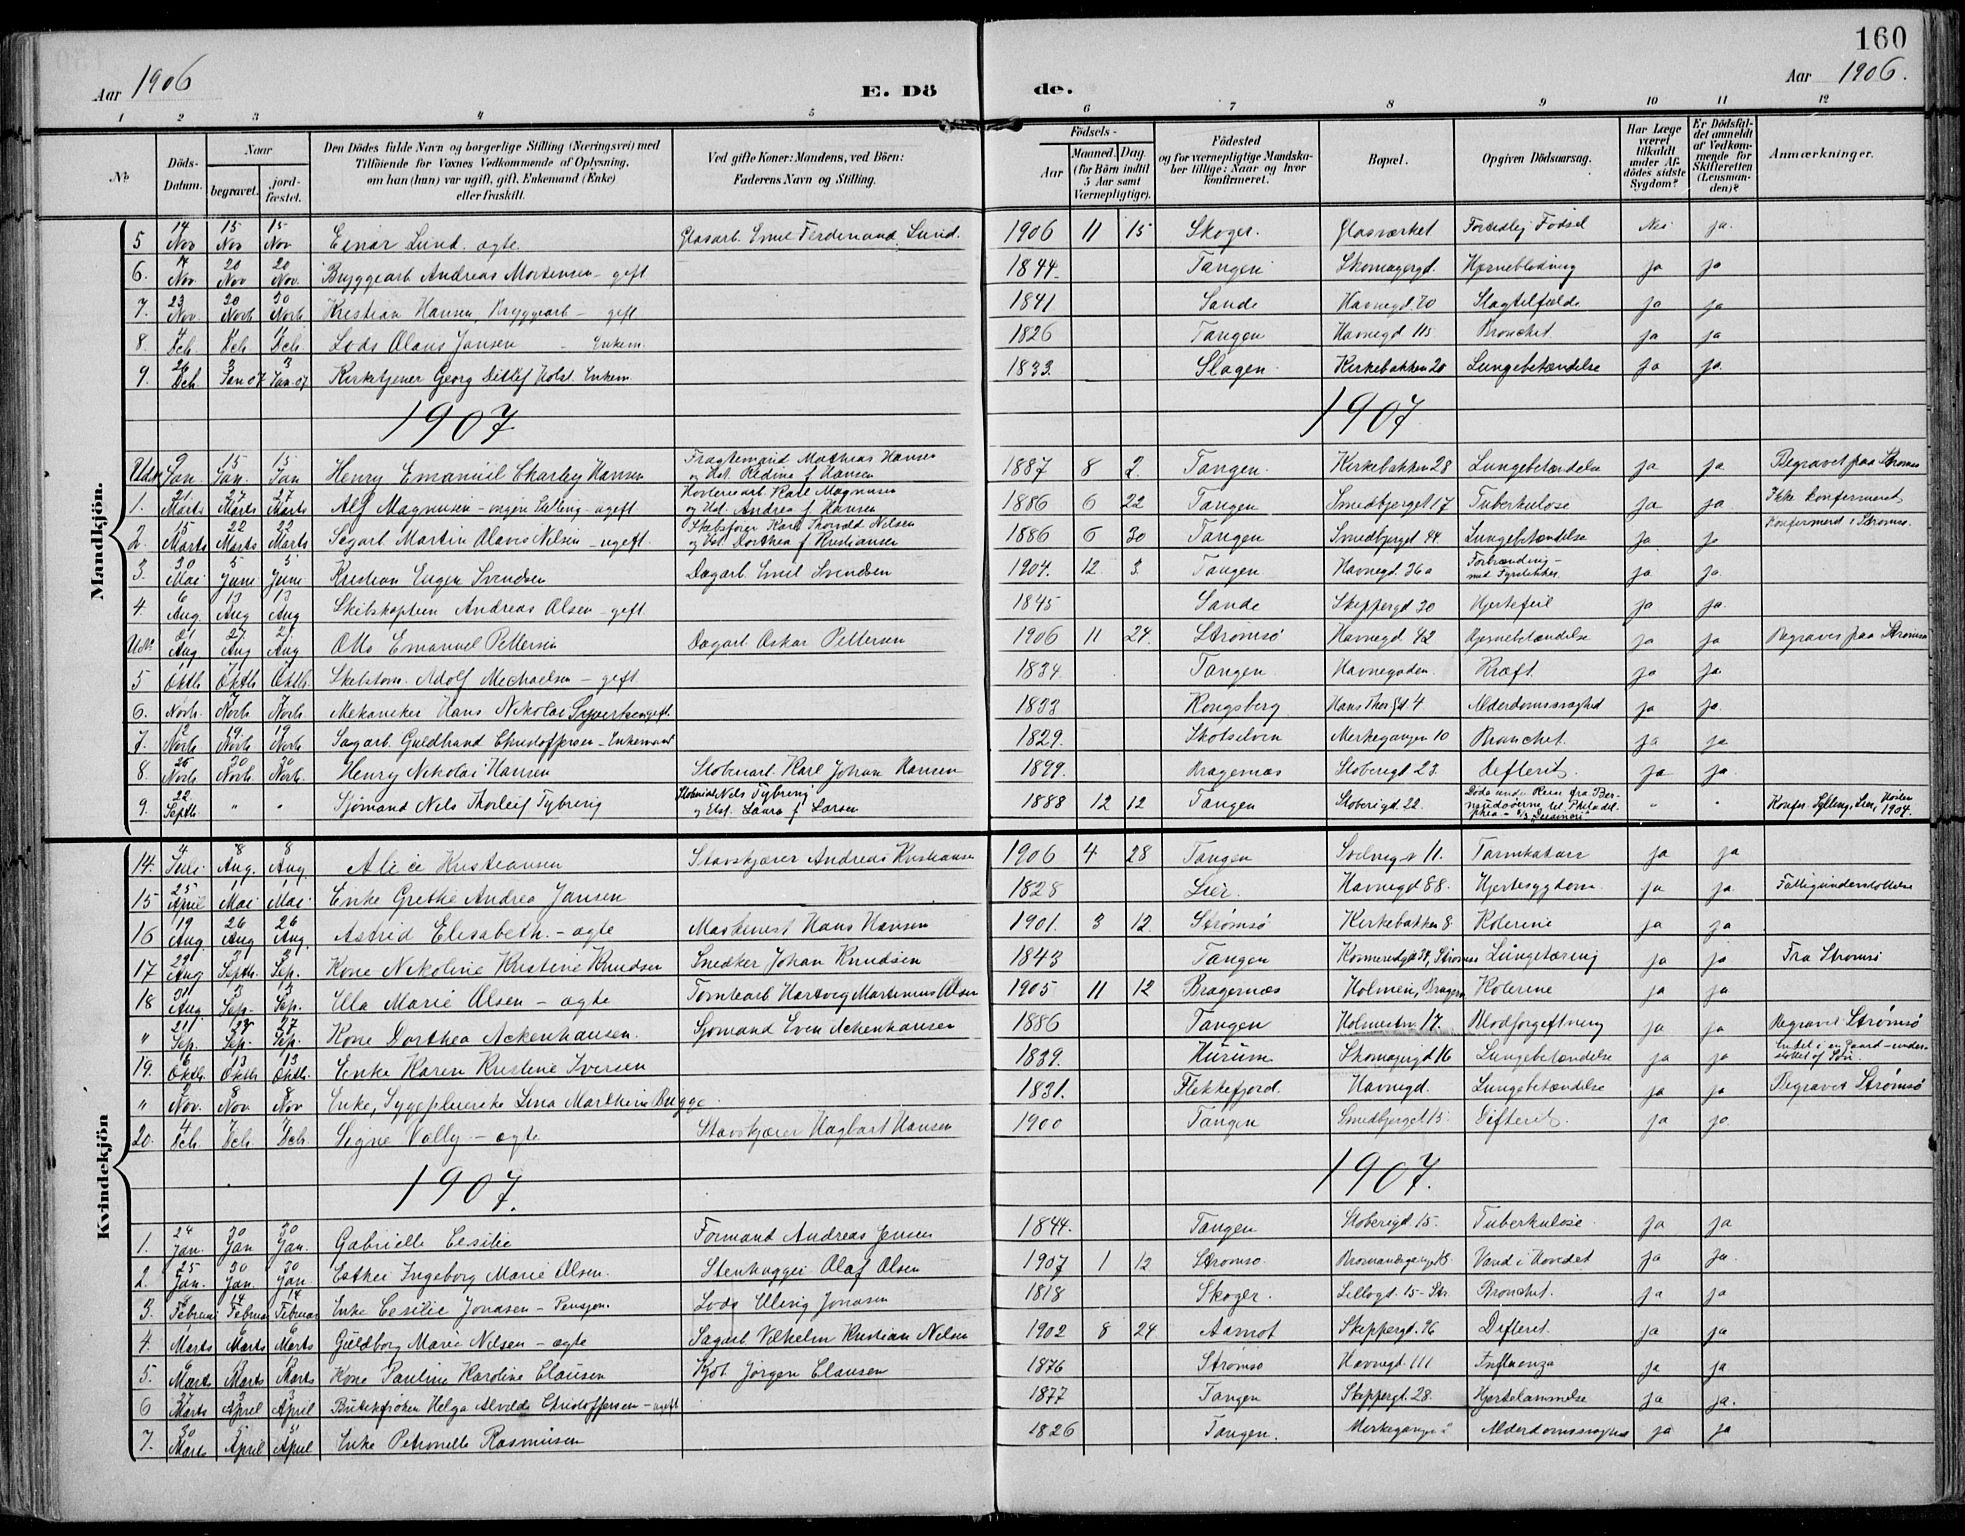 160
Aar 1906 E. Dö de. Aar 1906.
1 2 3 4 5 6 7 8 9 10 11 12
No
Döds-Datum.
Naar
begravet.
jord-fæstet.
Den Dödes fulde Navn og borgerlige Stilling (Næringsvei) med
Tilföiende for Voxnes Vedkommende af Oplysning,
om han (hun) var ugift, gift, Enkemand (Enke)
eller fraskilt.
Ved gifte Koner: Mandens, ved Börn:
Faderens Navn og Stilling.
Födsels-
Aar
Maaned. Dag.
(for Börn indtil
5 Aar samt
Værnepligtige).
Födested
og for værnepligtige Mandska-
ber tillige: Naar og hvor
konfirmeret.
Bopæl.
Opgiven Dödsaarsag.
Har Læge
været
tilkaldt
under Af-
dödes sidste
Sygdom?
Er Dödsfal-
det anmeldt
af Vedkom-
mende for
Skifteretten
(Lensman-
den)?
Anmærkninger.
Mandkjön.
5 14 Nov 15 Nov 15 Nov Einar Lund. ægte. Glasarb. Emil Ferdinand Lund. 1906 11 15 Skoger. Glasværket Fortidlig Fødsel Nei ja.
6. Nov. 20 Nov 20 Nov. Bryggearb Andreas Mortensen - gift 1844. Tangen Skomagergd. Hjerneblødning ja ja
7. 23 Nov. 30 Novb 30 Novb. Kristian Hansen, Bryggearb - gift 1841 Sande Havnegd. 70 Slagtilfælde ja ja
8. 4 Dcb. Dcb Dcb. Lods Olaus Jansen - Enkem. 1826 Tangen Havnegd 115 Bronchit. ja ja
9. 26 Dcb. 3 Jan 07 3 Jan. 07 Kirketjener Georg Ditlef Holst. Enkem. 1833. Slagen. Kirkebakken 20 Lungebetændelse Ja ja.
1907 1907.
9 Jan. 15 Jan. 15 Jan Henry Emanuel Charley Hansen Fragtemand Mathias Hansen
og Hst. Redine f Hansen 1887 8 2. Tangen. Kirkebakken 28 Lungebetændelse ja ja Begravet paa Strømsø
1. 21 Marts 27 Marts 27 Marts Alf Magnusen - ingen Stilling - ugift Høvleriarb Karl Magnusen
og Hst. Andrea f Hansen 1886 6 22 Tangen Smedbjerget 17 Tuberkulose ja ja. Ikke konfirmeret
2. 15 Marts 22 Marts 22 Marts Sagarb. Martin Olavis Nilsen - ugift. Skibsfører Karl Thorvald Nilsen
og Hst. Dorthea f Kristiansen 1886 6 30 Tangen Smedbjerget 44. Lungebetændelse ja ja Konfirmeret i Strømsø.
3. 30 Mai 5 June 5 June Kristian Eugen Svendsen Dagarb. Emil Svendsen 1904. 12 3. Tangen Havnegd. 36a Forbrænding
med Fyrstikker ja ja.
4. 6 Aug 13 Aug. 13 Aug Skibskaptein Andreas Olsen - gift 1845 Sande Skippergd 30 Hjertefeil ja ja.
21 Aug 27 Aug 27 Aug Otto Emanuel Pettersen Dagarb Oskar Pettersen 1906 11 24. Strømsø Havnegd 42 Hjernebetændelse ja ja Begravet paa Strømsø
5 1 Oktb 7 Oktb 7 Oktb. Skibstøm. Adolf Michaelsen - gift 1834. Tangen Havnegaden. Kræft. ja ja.
6. Novb. 7 Novb 7 Novb. Mekaniker Hans Nikolai Syvertsen gift. 1833 Kongsberg Hans Thor gd 4 Alderdomssvaghed ja ja.
7. 12 Novb 19 Novb 19 Novb Sagarb. Guldbrand Christoffersen - Enkemand 1829. Skotselven Merkegangen 10 Bronchit. ja ja
8. 25 Novb 30 Novb. 30 Novb. Henry Nikolai Hansen Støberiarb. Karl Johan Hansen 1899. Bragernæs Støberigd 23. Difterit. ja ja.
9. 22 Septb " " Sjømand Nils Thorleif Tybring Nils Tybring
og Hst. Laura f Larsen 1888 12 12 Tangen Støberigd. 22. Døde under Reise fra Ber-
mudaøerne til Philadel-
phia " " Konfir. Sylling, Lier, Høsten
1904.
Kvindekjön
14. 4 Juli 8 Aug. 8 Aug. Alice Kristiansen Stavskjærer Andreas Kristiansen 1906 4 28 Tangen Solvegt 11. Tarmkatarr ja ja
15 25 April 1 Mai 1 Mai Enke Grethe Andrea Jansen 1828 Lier. Havnegd 88. Hjertesygdom. ja ja. Fattigunderstøttelse
16 19 Aug. 26 Aug 26 Aug. Astrid Elisabeth. - ægte Maskinist Hans Hansen 1901. 3 12. Strømsø Kirkebakken 8. Kolerine ja ja
17 29 Aug 3 Septb. 3 Sep. Kone Nikoline Kristine Knudsen Snedker Johan Knudsen 1843 Tangen Strømsø Lungetæring ja ja Fra Strømsø
18 31 Aug. 3 Sep. 3 Sep. Ella Marie Olsen - ægte Tomtearb Hartvig Martinius Olsen 1905 11 12 Bragernæs Holmen, Bragern Kolerine ja ja
" 21 Sep. 27 Sep. 27 Sep. Kone Dorthea Ackenhausen. Sjømand Even Achenhausen 1886 Tangen Holmestrn 17. Blodforgiftning ja ja Begravet Strømsø
19. 6 Oktb. 13 Oktb 13 Oktb. Enke Karen Kristine Iversen 1839. Hurum Skomagergd 16 Lungebetændelse ja ja Endel i en Gaard - under-
støttet af Søn.
" 2 Nov. 8 Nov. 8 Nov Enke, Sygepleierske Lina Marthine Bugge. 1831. Flekkefjord. Havnegd. Lungebetændelse ja ja Begravet Strømsø
20. 4 Dcb. 7 Dcb 7 Dcb. Signe Volly - ægte Stavskjærer Hagbart Hansen 1900 Tangen Smedbjerget 15. Difterit. ja ja.
1907. 1907.
1. 24 Jan. 30 Jan 30 Jan. Gabrielle Cesilie Formand Andreas Jensen 1844. Tangen Støberigd 15. Tuberkulose ja ja
2. 25 Jan. 30 Jan. 30 Jan Esther Ingeborg Marie Olsen. Stenhugger Olaf Olsen 1907 1 12 Strømsø Vand i Hovedet ja ja.
3. Februar 14 Februar 14 Februar Enke Cesilie Jonasen - Pensjon. Lods Ulirig Jonasen 1818 Skoger. Lillogd. 15 - Str. Bronchit. ja ja
4. Marts 6 Marts 6 Marts Guldborg Marie Nilsen - ægte Sagarb Vilhelm Kristian Nilsen 1902 8 24 Aamot Skippergd. 26 Difterit. ja ja
5. 6 Marts Marts Marts Kone Pauline Karoline Clausen Kjøb. Jørgen Clausen 1876 Strømsø Havnegd. 111 Influenza ja ja
6 27 Marts 3 April 3 April Butikfrøken Helga Alvilde Christoffersen - ugift 1877 Tangen Skippergt. 28. Hjertelammelse ja ja.
7. 30 Marts 5 April 5 April Enke Petronelle Rasmusen 1826 Tangen. Merkegangen Alderdomssvaghed ja ja